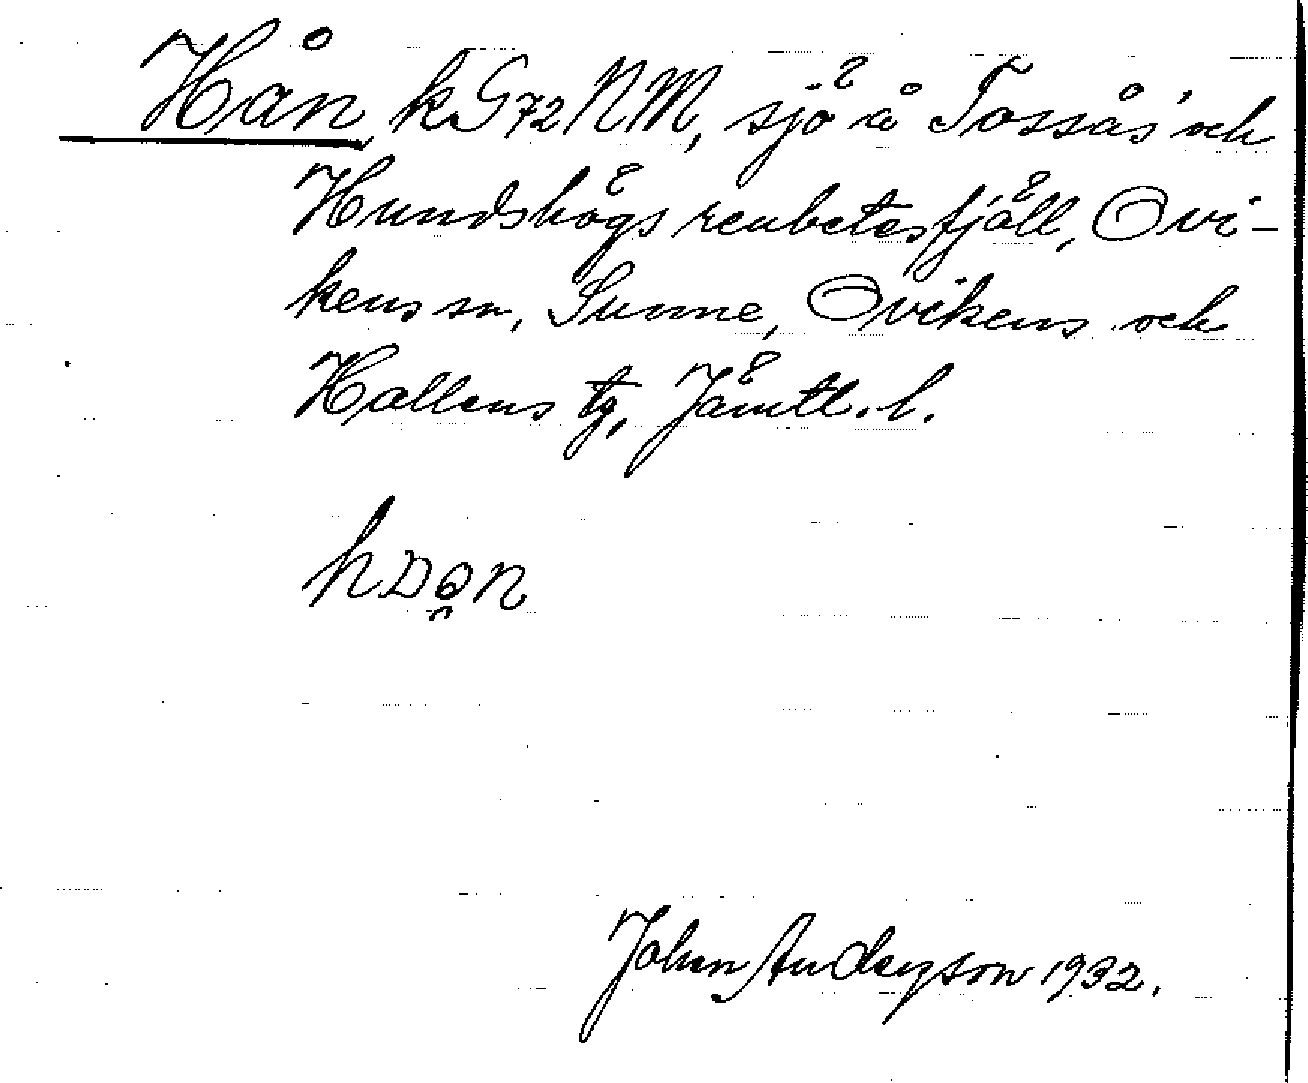 Hån, k. G72NM, sjö å Tossås' och
Hundshögs renbetesfjäll, Ovi-
kens sn, Sunne, Ovikens och
Hallens tg, Jämtl. l.
John Anderson 1932.